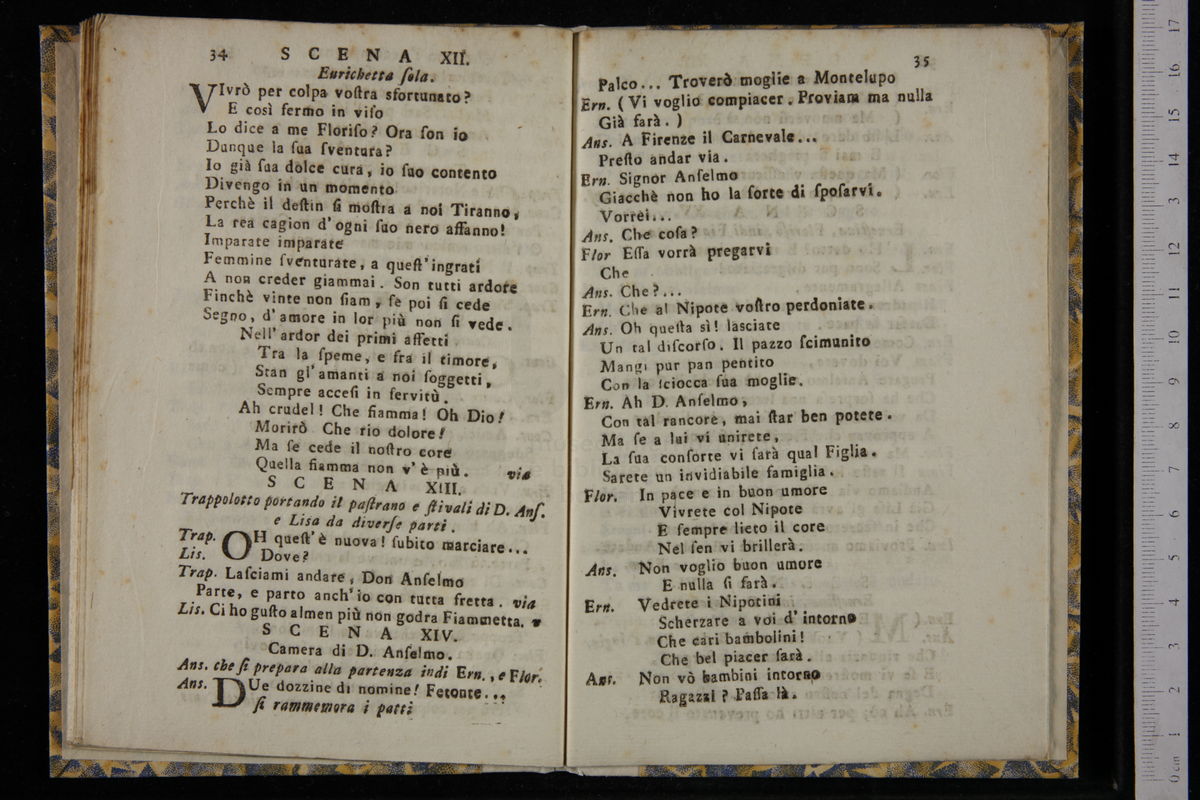 34 S C E N A XII.
Enrichetta ſola.
VIvrò per colpa voſtra sfortunato?
E così fermo in viſo
Lo dice a me Floriſo? Ora ſon io
Dunque la ſua ſventura?
Io già ſua dolce cura, io ſuo contento
Divengo in un momento
Perchè il deſtin ſi moſtra a noi Tiranno,
La rea cagion d'ogni ſuo nero affanno!
Imparate imparate
Femmine ſventurate, a queſt'ingrati
A non creder giammai. Son tutti ardore
Finchè vinte non ſiam, ſe poi ſi cede
Segno, d'amore in lor più non ſi vede.
Nell'ardor dei primi affetti
Tra la ſpeme, e fra il timore,
Stan gl'amanti a noi ſoggetti,
Sempre acceſi in ſervitù.
Ah crudel! Che fiamma! Oh Dio!
Morirò Che rio dolore!
Ma ſe cede il noſtro core
Quella fiamma non v'è più. via
S C E N A XIII.
Trappolotto portando il paſtrano e ſtivali di D. Anſ.
e Liſa da diverſe parti.
Trap. OH queſt'è nuova! ſubito marciare...
Lis. Dove?
Trap. Laſciami andare, Don Anſelmo
Parte, e parto anch'io con tutta fretta. via
Lis. Ci ho guſto almen più non godra Fiammetta. v
S C E N A XIV.
Camera di D. Anſelmo.
Ans. che ſi prepara alla partenza indi Ern., e Flor.
Ans. DUe dozzine di nomine! Fetonte...
ſi rammemora i patti
35
Palco... Troverò moglie a Montelupo
Ern. (Vi voglio compiacer. Proviam ma nulla
Già farà.)
Ans. A Firenze il Carnevale...
Preſto andar via.
Ern. Signor Anſelmo
Giacchè non ho la ſorte di ſpoſarvi.
Vorrei...
Ans. Che coſa?
Flor Eſſa vorrà pregarvi
Che
Ans. Che?...
Ern. Che al Nipote voſtro perdoniate.
Ans. Oh queſta sì! laſciate
Un tal diſcorſo. Il pazzo ſcimunito
Mangi pur pan pentito
Con la ſciocca ſua moglie.
Ern. Ah D. Anſelmo,
Con tal rancore, mai ſtar ben potete.
Ma ſe a lui vi unirete,
La ſua conſorte vi ſarà qual Figlia.
Sarete un invidiabile famiglia.
Flor. In pace e in buon umore
Vivrete col Nipote
E ſempre lieto il core
Nel ſen vi brillerà.
Ans. Non voglio buon umore
E nulla ſi farà.
Ern. Vedrete i Nipotini
Scherzare a voi d'intorno
Che cari bambolini!
Che bel piacer ſarà.
Ans. Non vò bambini intorno
Ragazzi? Paſſa là.